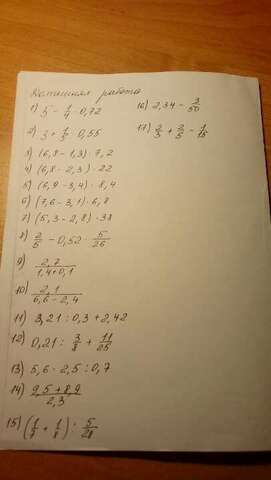 Домашняя работа
1) 5 - 1/4 - 0,72
2) 3 + 1/5 - 0,55
3) (6,8 - 1,3) · 7,2
4) (6,8 - 2,3) · 22
5) (6,9 - 3,4) · 8,4
6) (7,6 - 3,1) · 6,8
7) (5,3 - 2,8) · 38
8) 2/5 - 0,52 · 5/26
9) 2,7/(1,4+0,1)
10) 2,1/(6,6-2,4)
11) 3,21 : 0,3 + 2,42
12) 0,21 : 3/8 + 11/25
13) 5,6 · 2,5 : 0,7
14) (9,5 + 8,9)/2,3
15) (1/7 + 1/8) : 5/28
16) 2,34 - 3/50
17) 2/3 + 2/5 - 1/15